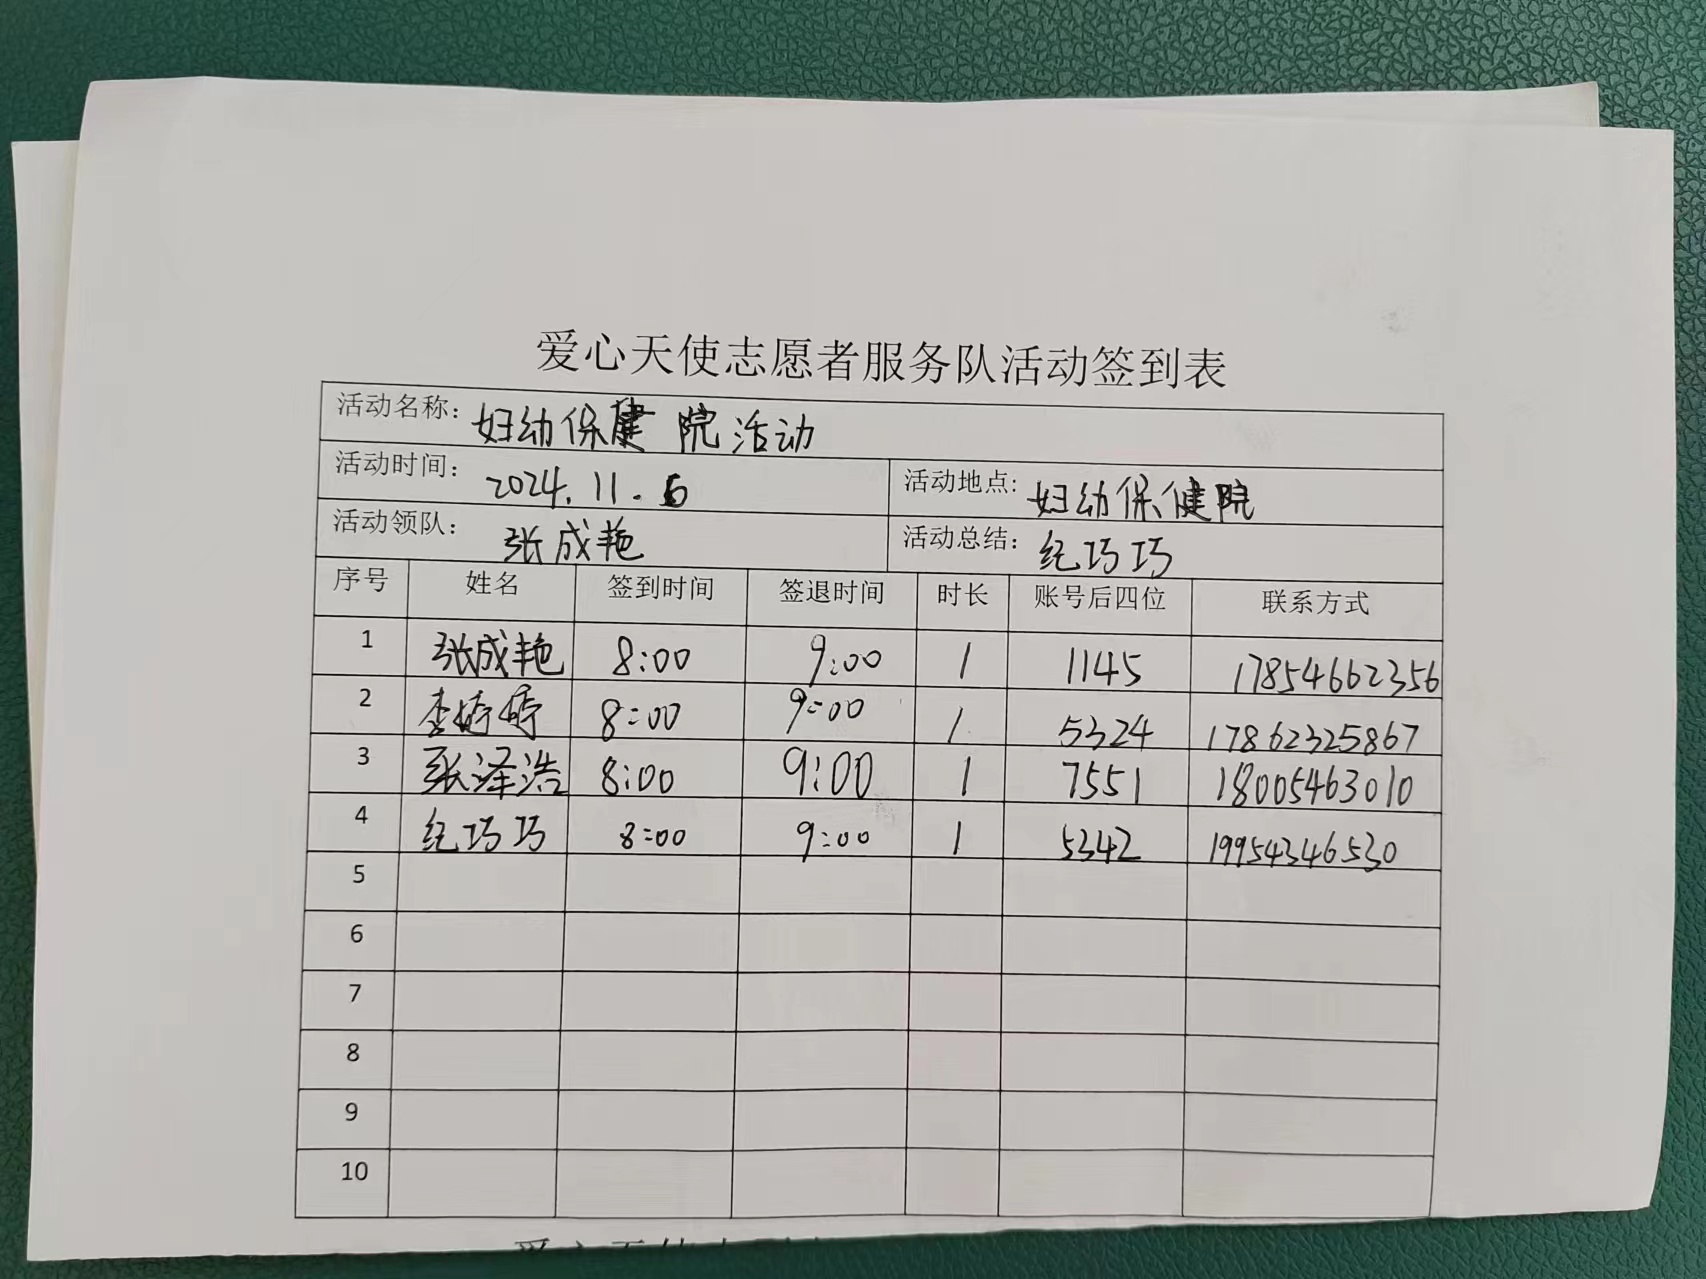 爱心天使志愿者服务队活动签到表
活动名称：妇幼保健院活动
活动时间：2024.11.6 活动地点：妇幼保健院
活动领队：张成艳 活动总结：纪巧巧
序号 姓名 签到时间 签退时间 时长 账号后四位 联系方式
1 张成艳 8:00 9:00 1 1145 17854662356
2 李婷婷 8:00 9:00 1 5324 17862325867
3 张泽浩 8:00 9:00 1 7551 18005463010
4 纪巧巧 8:00 9:00 1 5342 19954346530
5
6
7
8
9
10